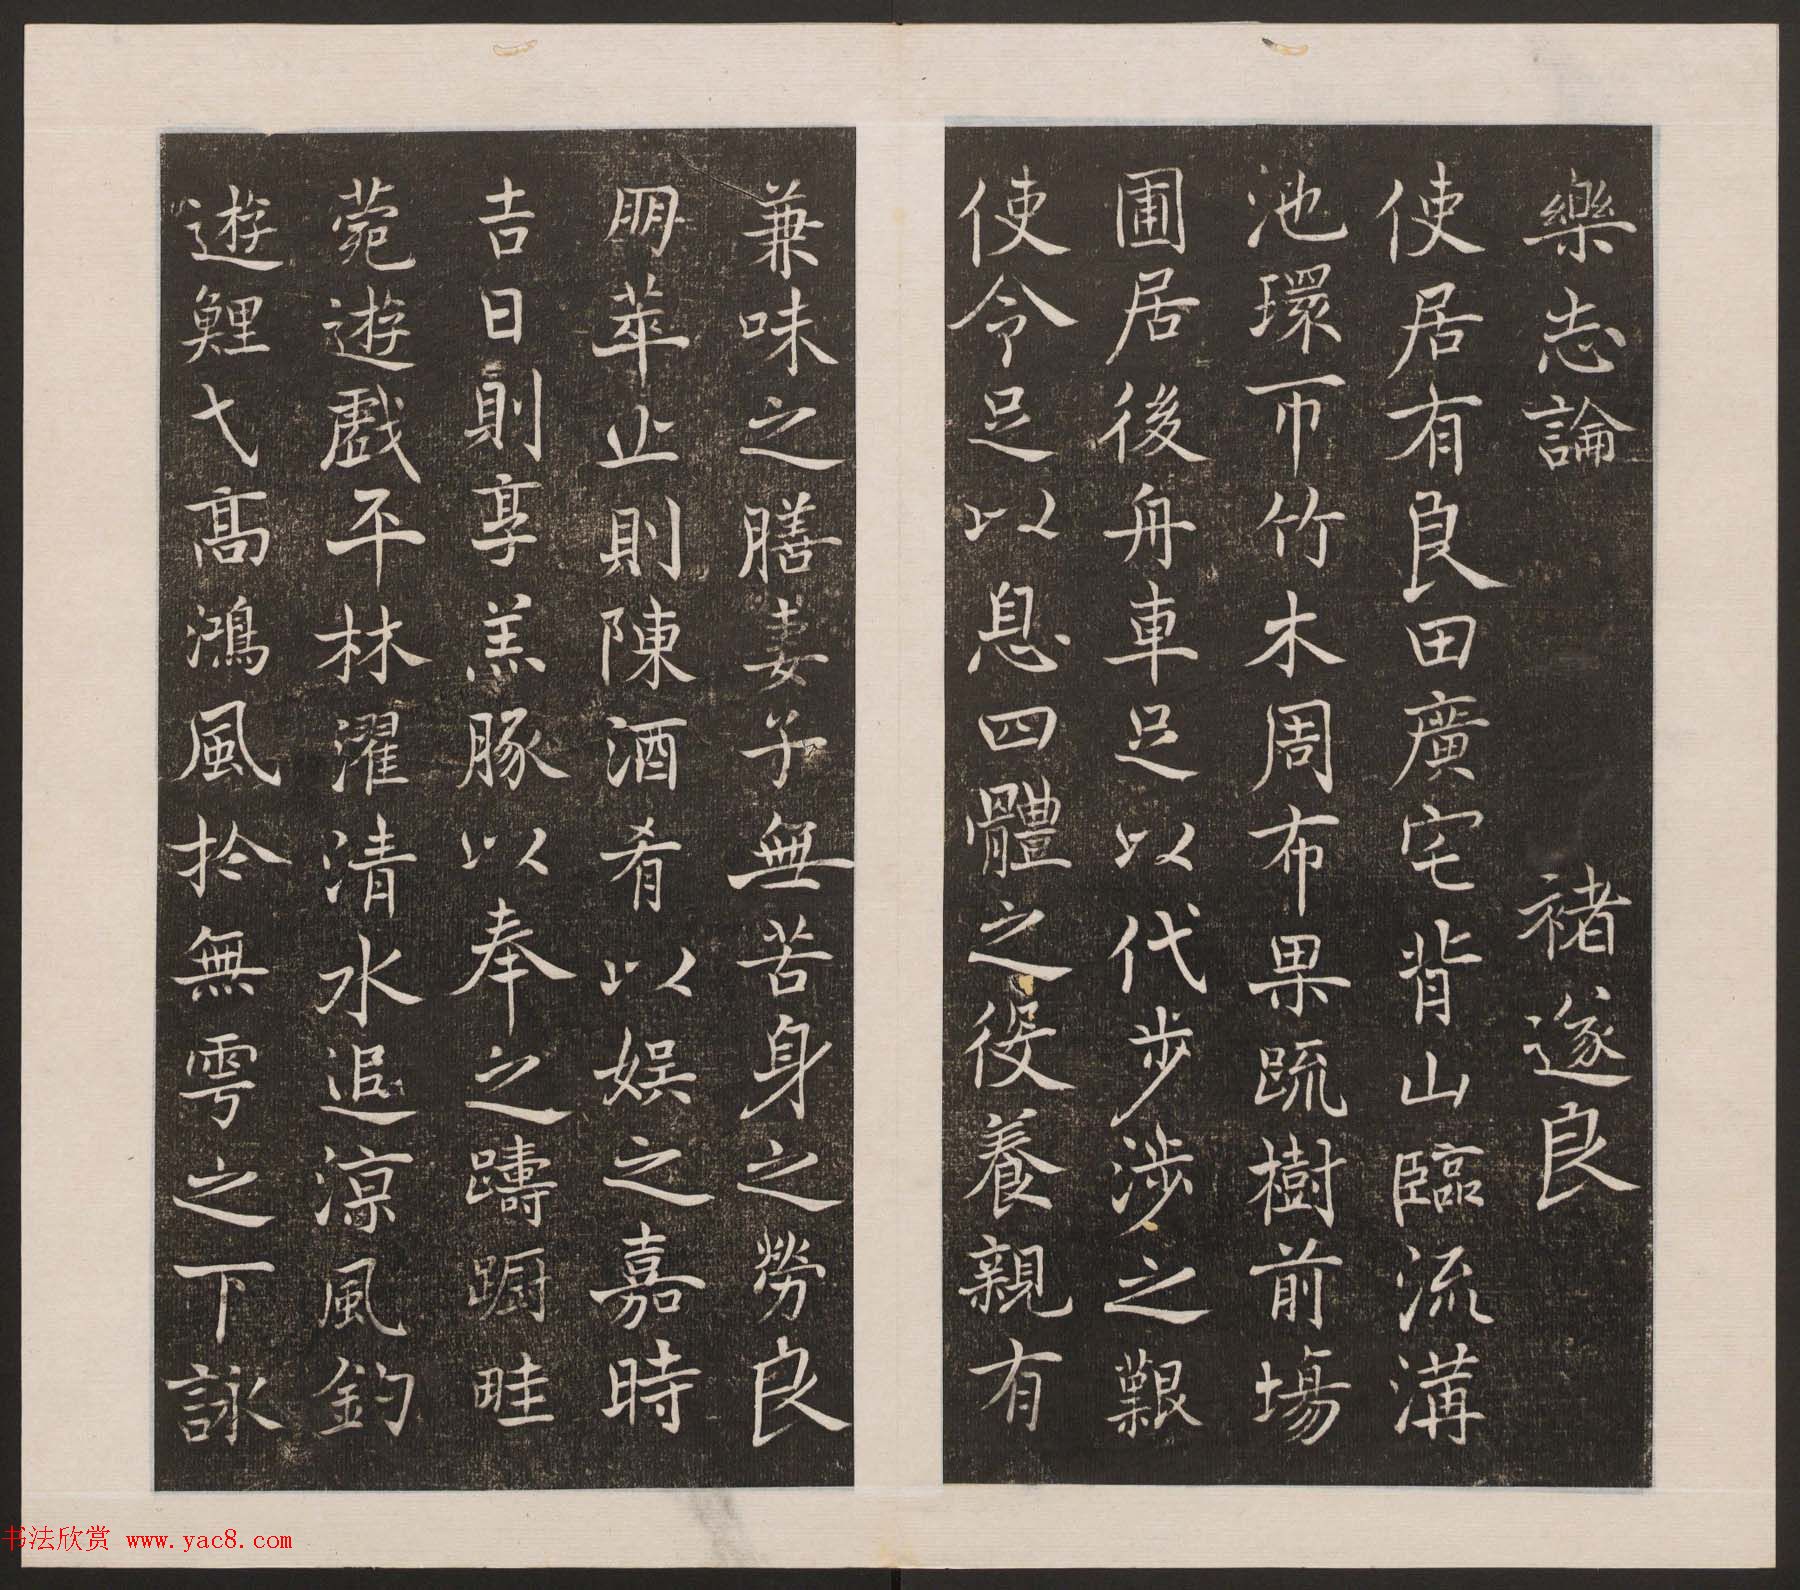 樂志論 褚遂良
使居有良田廣宅背山臨流溝
池環帀竹木周布果䟽樹前場
圃居後舟車足以代步涉之艱
使令足以息四體之役養親有
兼味之膳妻子無苦身之勞良
朋萃止則陳酒肴以娛之嘉時
吉日則享羔豚以奉之躊蹰畦
菀遊戲平林濯清水追凉風釣
遊鯉弋高鴻風於無雩之下詠
书法欣赏 www.yac8.com